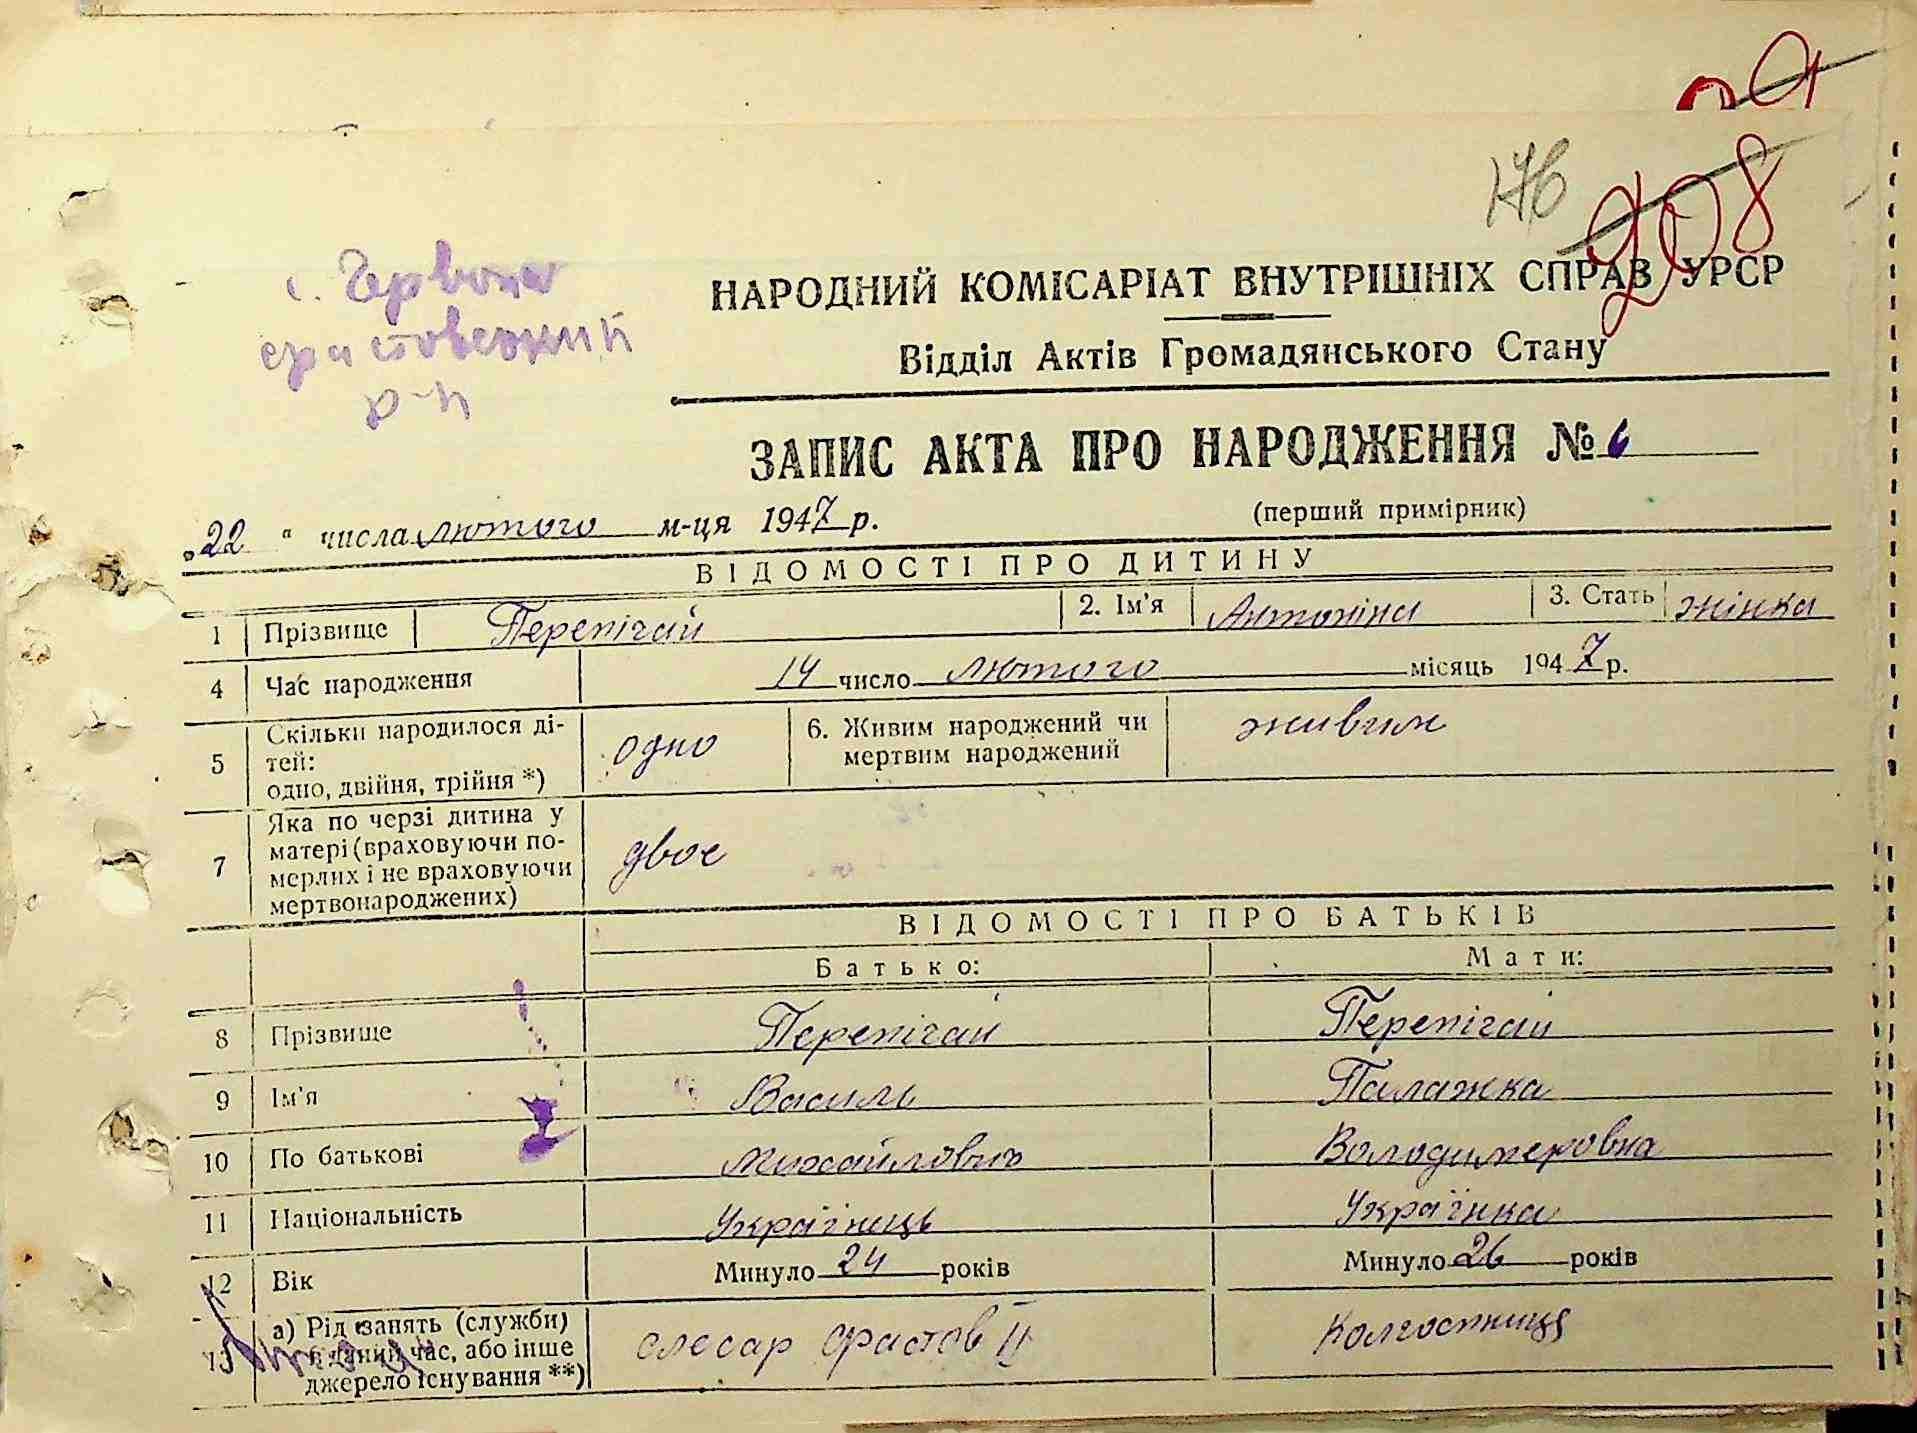 176
208
с. Червона
Фастовський
р-н
НАРОДНИЙ КОМІСАРІАТ ВНУТРІШНІХ СПРАВ УРСР
Відділ Актів Громадянського Стану
ЗАПИС АКТА ПРО НАРОДЖЕННЯ № 6
„22 " числа лютого м-ця 1947 р. (перший примірник)
ВІДОМОСТІ ПРО ДИТИНУ
1 Прізвище Перепічай 2. Ім'я Антоніна 3. Стать жінка
4 Час народження 14 число лютого місяць 1947 р.
5 Скільки народилося ді-
тей:
одно, двійня, трійня *) одно 6. Живим народжений чи
мертвим народжений живим
7 Яка по черзі дитина у
матері (враховуючи по-
мерлих і не враховуючи
мертвонароджених) двое
ВІДОМОСТІ ПРО БАТЬКІВ
Батько: Мати:
8 Прізвище Перепічай Перепічай
9 Ім'я Василь Палажка
10 По батькові Михайлович Володимеровна
11 Національність Українець Українка
12 Вік Минуло 24 років Минуло 26 років
13 а) Рід занять (служби)
в даний час, або інше
джерело існування **) слесар Фастов II Колгостниця